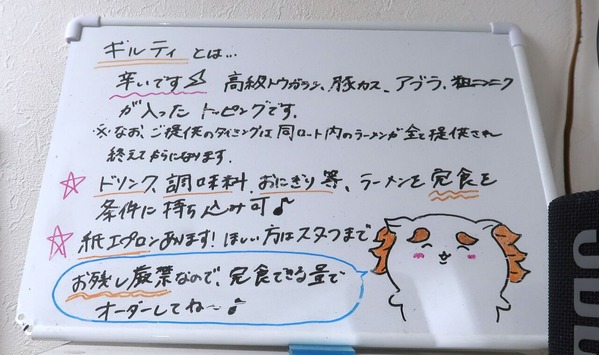 ギルティとは…
辛いです 高級トウガラシ、豚カス、アブラ、粗ニンニク
が入ったトッピングです。
※なお、ご提供のタイミングは同ロット内のラーメンが全て提供され
終えてからになります。
☆ドリンク、調味料、おにぎり等、ラーメンを完食を
条件に持ち込み可♪
☆紙エプロンあります!ほしい方はスタッフまで
お残し廃業なので、完食できる量で
オーダーしてね〜♪